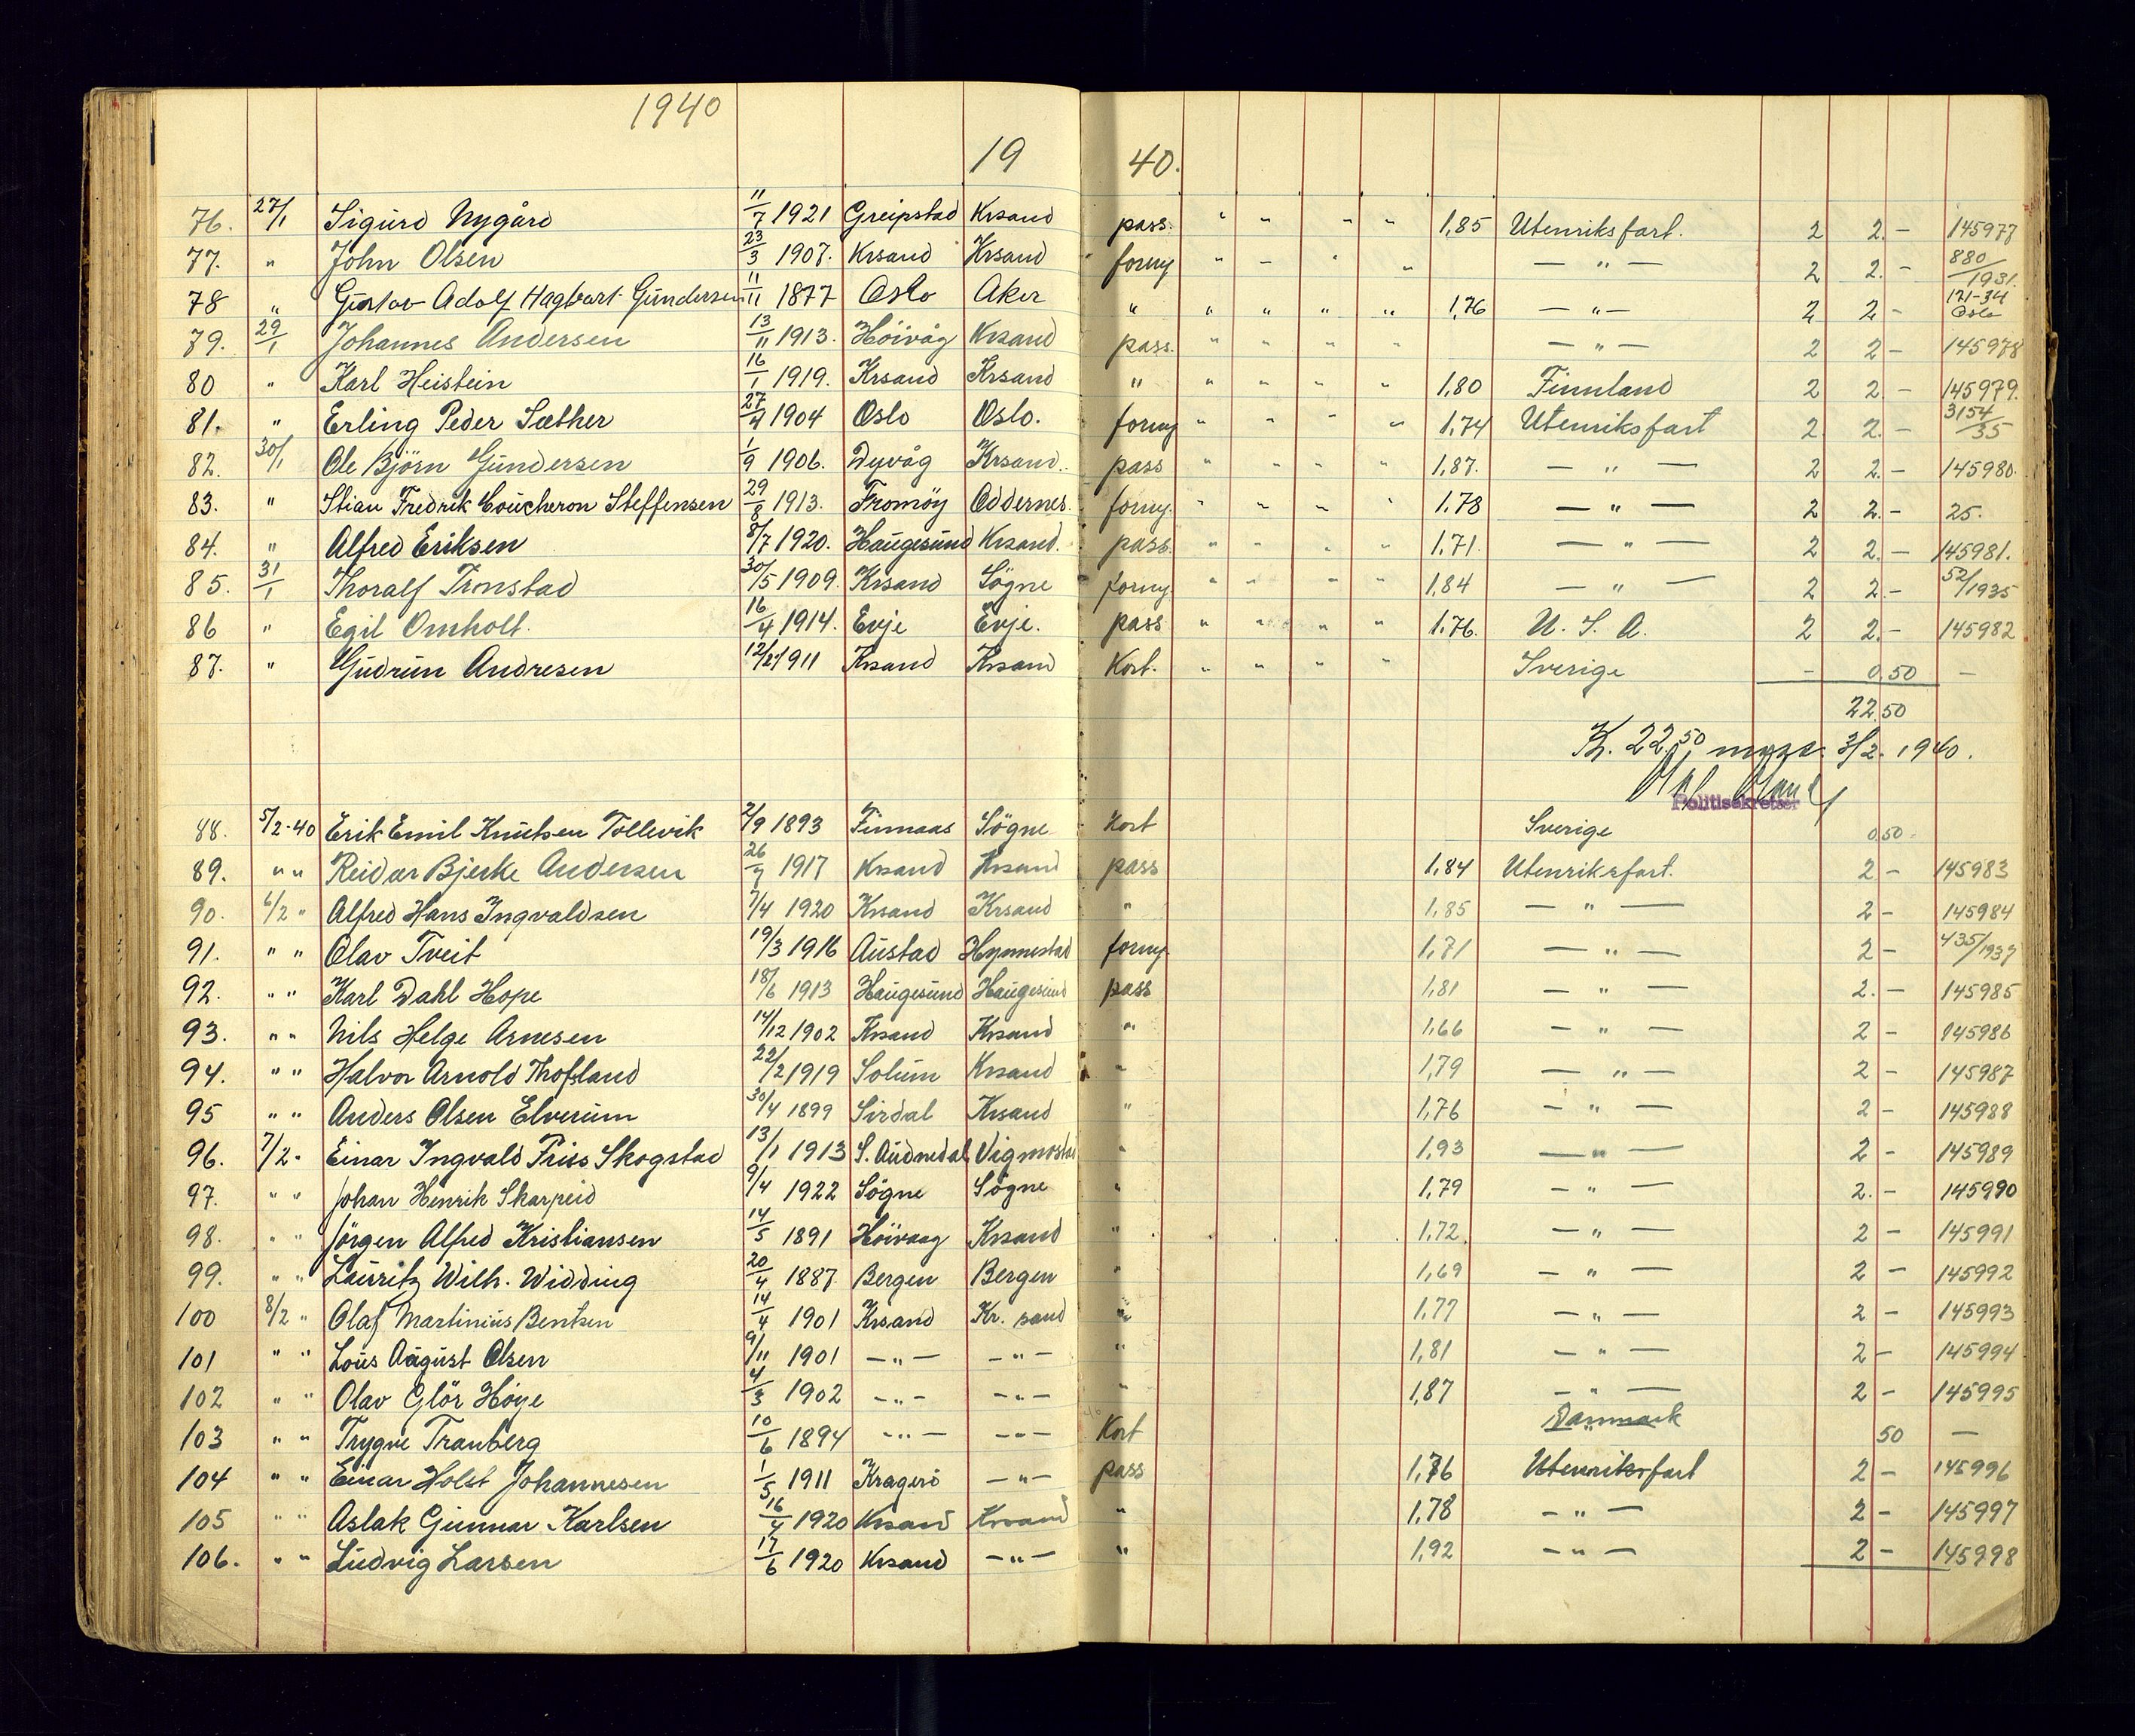 1940
19 40.
76. 27/1 Sigurd Nygård 11/7 1921 Greipstad Krsand pass. " " " " 1,85 Utenriksfart. 2 2.- 145977
77. " John Olsen 23/3 1907. Krsand Krsand forny " - " " — " — 2 2.- 880/1931.
78 " Gustav Adolf Hagbart Gundersen 11/11 1877 Oslo Aker " " " " " 1,76 — " — 2 2- 121-34 Oslo
79. 29/1 Johannes Andersen 13/11 1913. Höivåg Krsand pass. " " " " — " — 2 2- 145978
80 " Karl Heistein 16/1 1919. Krsand Krsand " " " " " 1,80 Finnland 2 2.- 145979.
81. " Erling Peder Sæther 27/4 1904 Oslo Oslo. forny " " " " 1,74 Utenriksfart 2 2.- 3154/35
82. 30/1 Ole Björn Gundersen 1/9 1906. Dyvåg Krsand. pass " " " " 1,87. — " — 2 2.- 145980.
83. " Stian Fredrik Coucheron Steffensen 29/8 1913. Tromöy Oddernes. forny. " " " " 1.78 — " — 2 2.- 25.
84. " Alfred Eriksen 8/7 1920. Haugesund Krsand. pass. " " " " 1,71. — " — 2 2.- 145981.
85. 31/1 Thoralf Tronstad 30/5 1909. Krsand Sögne forny. " " " " 1,84 — " — 2 2.- 52/1935
86 " Egil Omholt. 16/4 1914. Evje Evje. pass " " " " 1.76. U. S. A. 2 2.- 145982
87. " Gudrun Andresen 12/2 1911 Krsand Krsand Kort. " " " " Sverige - 0,50 —
22,50
Kr. 22,50 3/2. 1940.
Politisekretær
88. 5/2-40 Erik Emil Knutsen Tollevik 2/9 1893 Finnaas Sögne Kort Sverige 0,50.
89. " " Reidar Bjerke Andersen 26/7 1917 Krsand Krsand pass 1,84 Utenriksfart. 2 - 145983
90. 6/2 " Alfred Hans Ingvaldsen 7/4 1920 Krsand Krsand " 1,85 — " — 2 - 145984
91. " " Olav Tveit 19/3 1916 Austad Hynnestad forny. 1,71 — " — 2 - 435/1937
92. " " Karl Dahl Hope 18/6 1913 Haugesund Haugesund pass 1,81 — " — 2.- 145985
93. " " Nils Helge Arnesen 14/12 1902 Krsand Krsand " 1,66 — " — 2 - 145986
94. " " Halvor Arnold Thofsland 22/2 1919 Solum Krsand " 1,79 — " — 2 - 145987
95 " " Anders Olsen Elverum 30/4 1899 Sirdal Krsand " 1,76 — " — 2 - 145988
96. 7/2 - Einar Ingvald Friis Skogstad 13/1 1913 S. Audnedal Vigmostad " 1,93 — " — 2 - 145989
97. " " Johan Henrik Skarpeid 9/4 1922 Sögne Sögne " 1,79 — " — 2.- 145990
98. " " Jörgen Alfred Kristiansen 14/5 1891 Höivaag Krsand " 1,72. " 2 - 145991
99. " " Lauritz Wilh. Widding 20/4 1887. Bergen Bergen " 1,69 — " — 2 - 145992
100 8/2 " Olaf Martinius Bentsen 14/4 1901 Krsand Kr. sand " 1,77 — " — 2 - 145993
101 " " Louis August Olsen 9/11 1901 — " — — " — " 1,81 — " — 2 - 145994
102 " " Olav Glör Höye 4/3 1902 — " — — " — " 1,87 — " — 2 - 145995
103 " " Trygve Tranberg 10/6 1894 — " — — " — Kort Danmark 50 —
104 " " Einar Holst Johannesen 1/5 1911 Kragerö — " — pass 1,76 Utenriksfart 2 - 145996
105 " " Aslak Gunnar Karlsen 16/4 1920 Krsand Krsand " 1,78 — " — 2 - 145997
106. " " Ludvig Larsen 17/6 1920 Krsand — " — " 1,92 — " — 2 - 145998